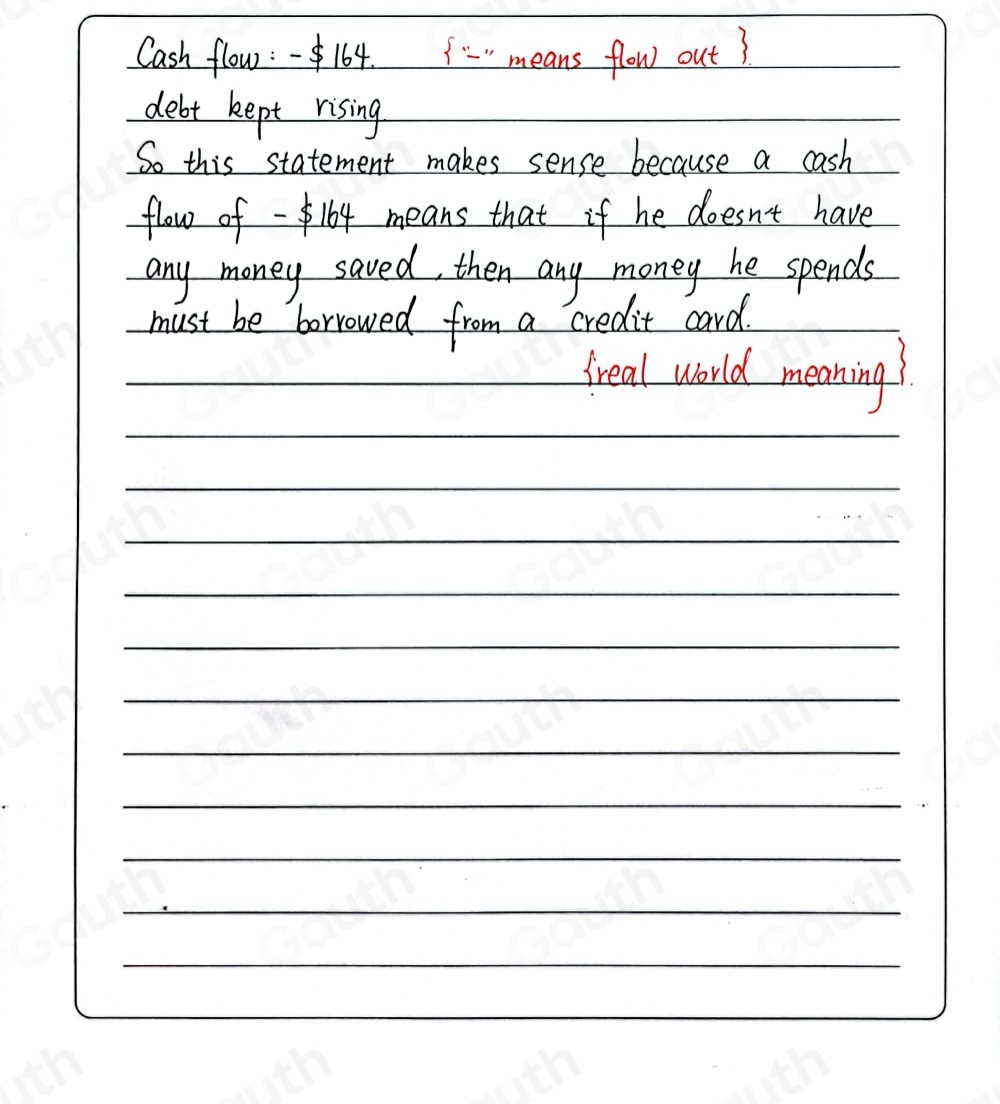 Cash flow: -$164. {"-" means flow out}.
debt kept rising
So this statement makes sense because a cash
flow of -$164 means that if he doesn't have
any money saved, then any money he spends
must be borrowed from a credit card.
{real world meaning}.